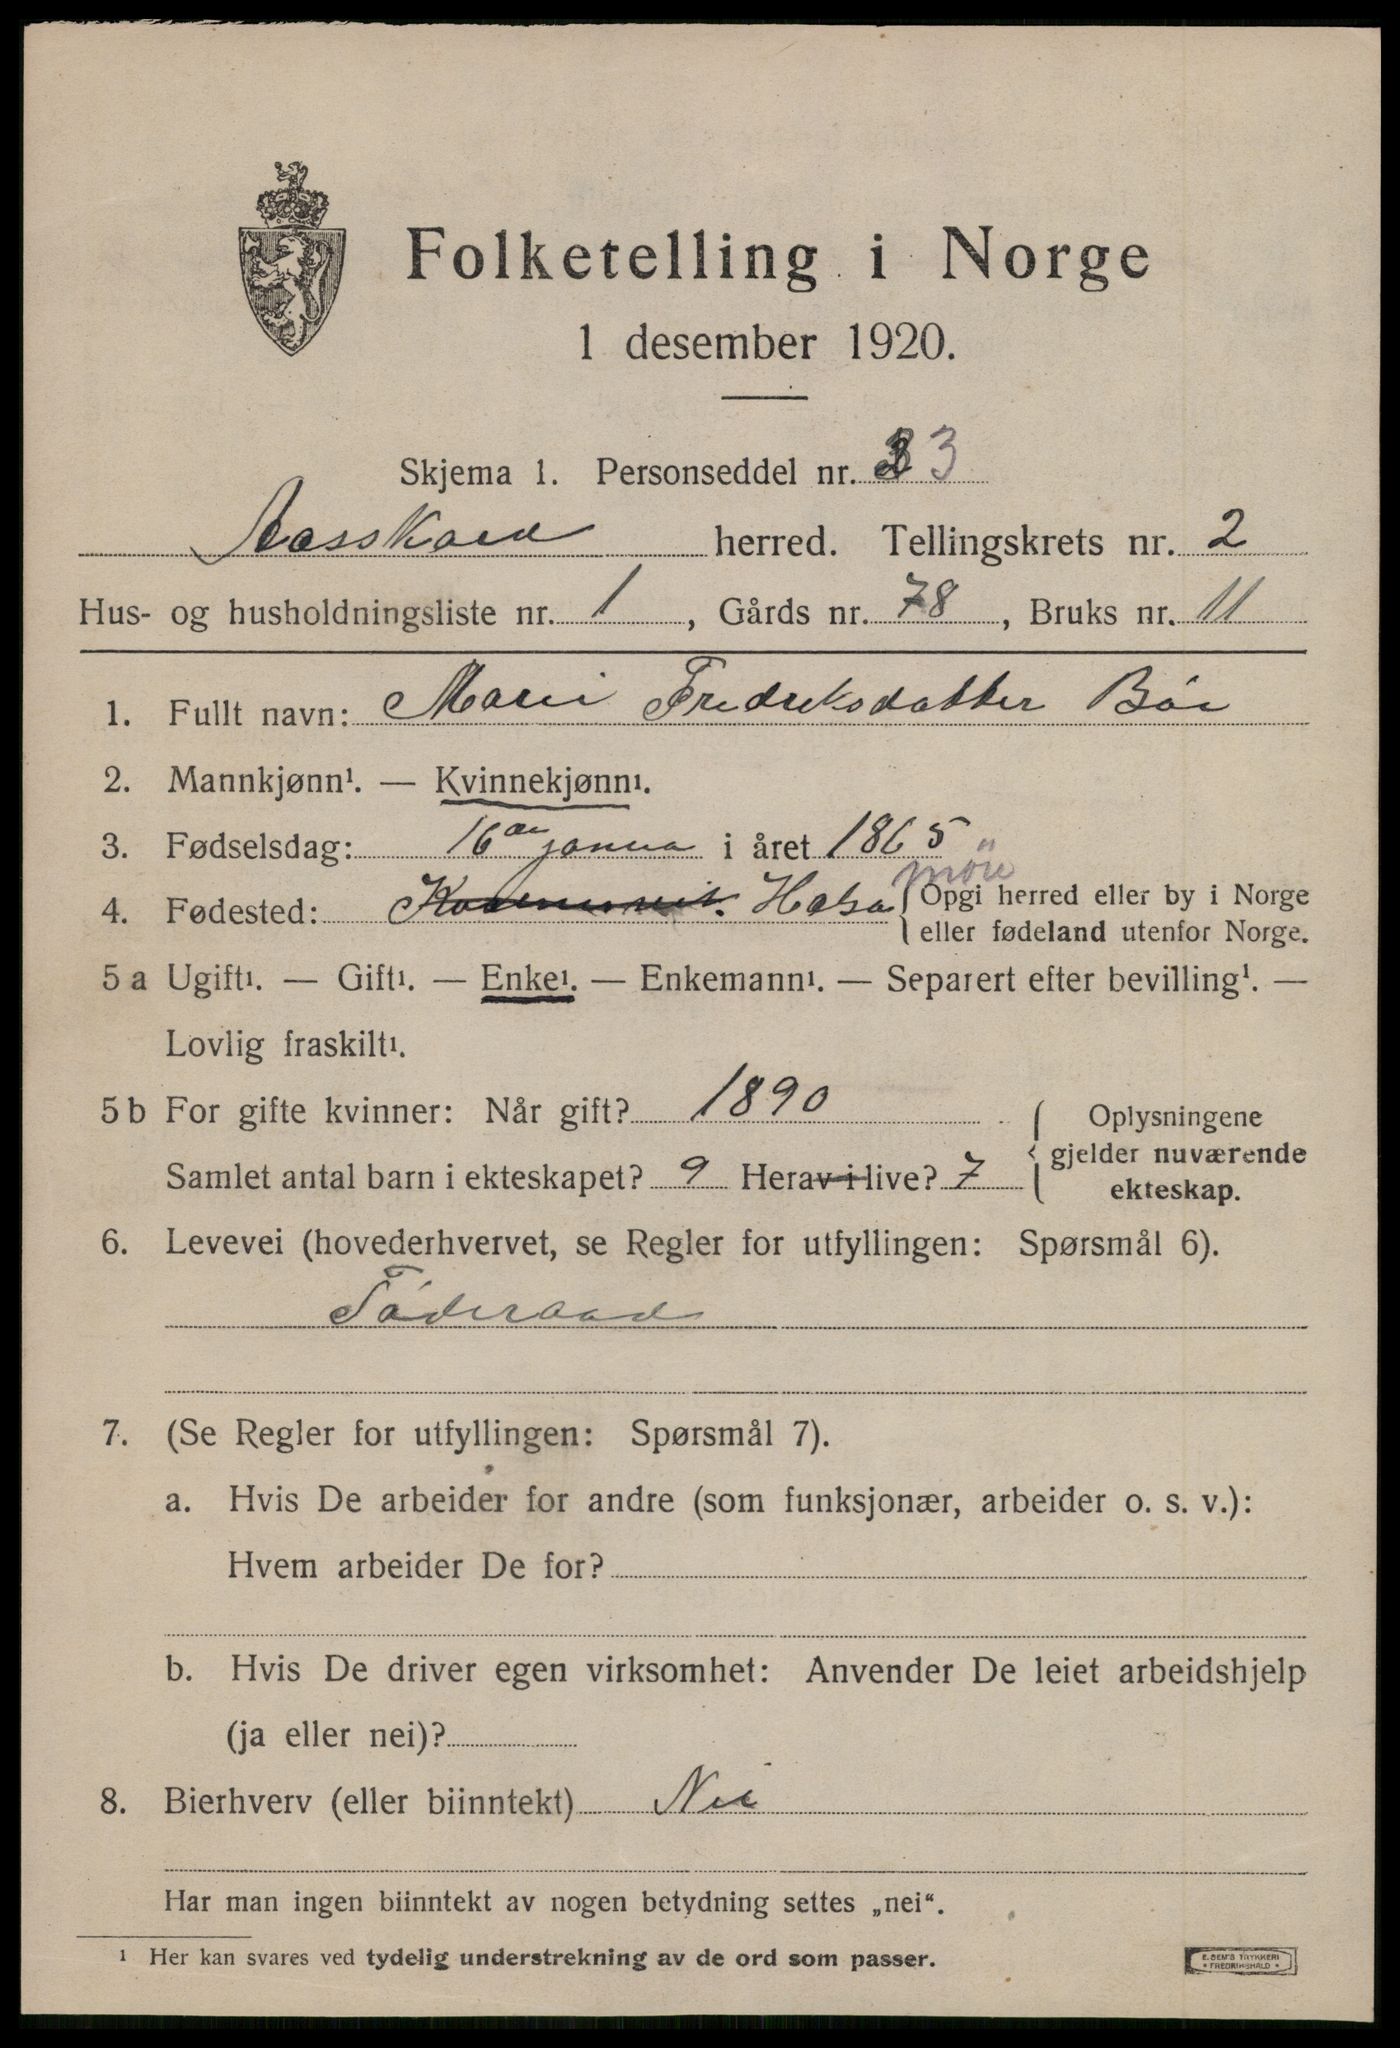 Folketelling i Norge
1 desember 1920.
Skjema 1. Personseddel nr. 3
Aasskard herred. Tellingskrets nr. 2
Hus- og husholdningsliste nr. 1, Gårds nr. 78, Bruks nr. 11
1. Fullt navn: Marii Fredriksdatter Böe
2. Mannkjønn¹. — Kvinnekjønn¹.
3. Fødselsdag: 16de janua i året 1865
möre
4. Fødested: Halsa { Opgi herred eller by i Norge
eller fødeland utenfor Norge.
5 a Ugift¹. — Gift¹. — Enke¹. — Enkemann¹. — Separert efter bevilling¹. —
Lovlig fraskilt¹.
5 b For gifte kvinner: Når gift? 1890
Oplysningene
gjelder nuværende
ekteskap.
Samlet antal barn i ekteskapet? 9 Herav i live? 7
6. Levevei (hovederhvervet, se Regler for utfyllingen: Spørsmål 6).
Föderaad
7. (Se Regler for utfyllingen: Spørsmål 7).
a. Hvis De arbeider for andre (som funksjonær, arbeider o. s. v.):
Hvem arbeider De for?
b. Hvis De driver egen virksomhet: Anvender De leiet arbeidshjelp
(ja eller nei)?
8. Bierhverv (eller biinntekt) Nei
Har man ingen biinntekt av nogen betydning settes „nei“.
¹ Her kan svares ved tydelig understrekning av de ord som passer.
E. SEM'S TRYKKERI
• FREDRIKSHALD •